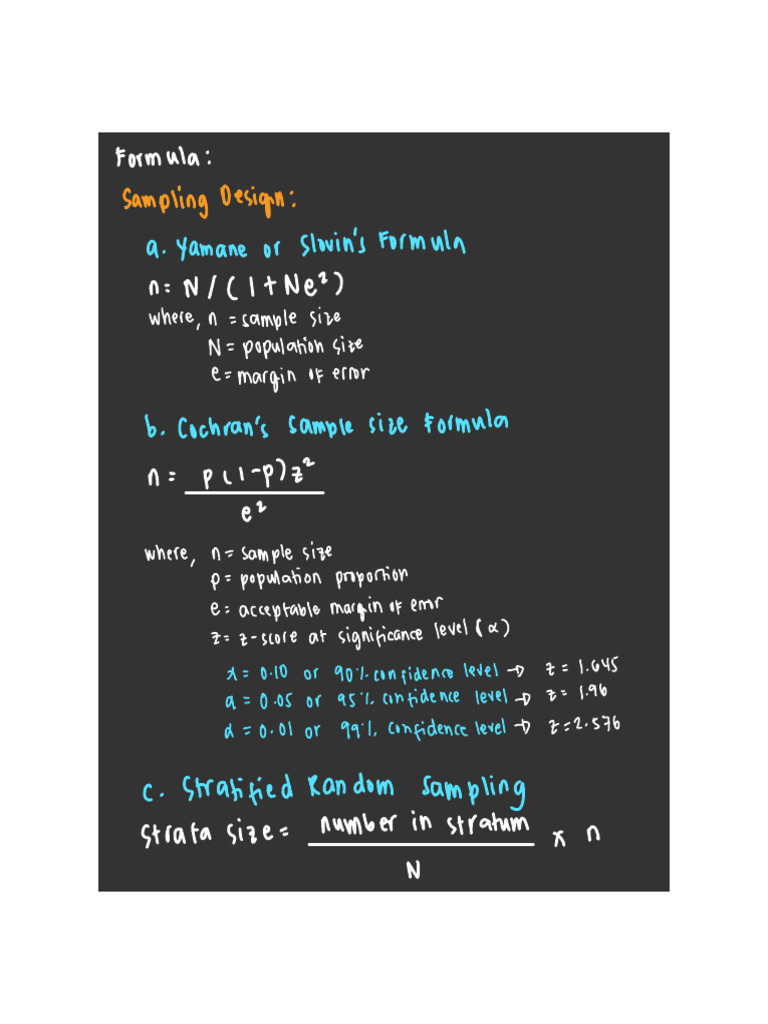 Formula:
Sampling Design:
a. Yamane or Slovin's Formula
n = N / ( 1 + Ne² )
where, n = sample size
N = population size
e = margin of error
b. Cochran's sample size Formula
n = p(1-p)z²
e²
where, n = sample size
p = population proportion
e = acceptable margin of error
z = z-score at significance level (α)
α = 0.10 or 90% confidence level → z = 1.645
α = 0.05 or 95% confidence level → z = 1.96
α = 0.01 or 99% confidence level → z = 2.576
c. Stratified Random Sampling
Strata size = number in stratum x n
N